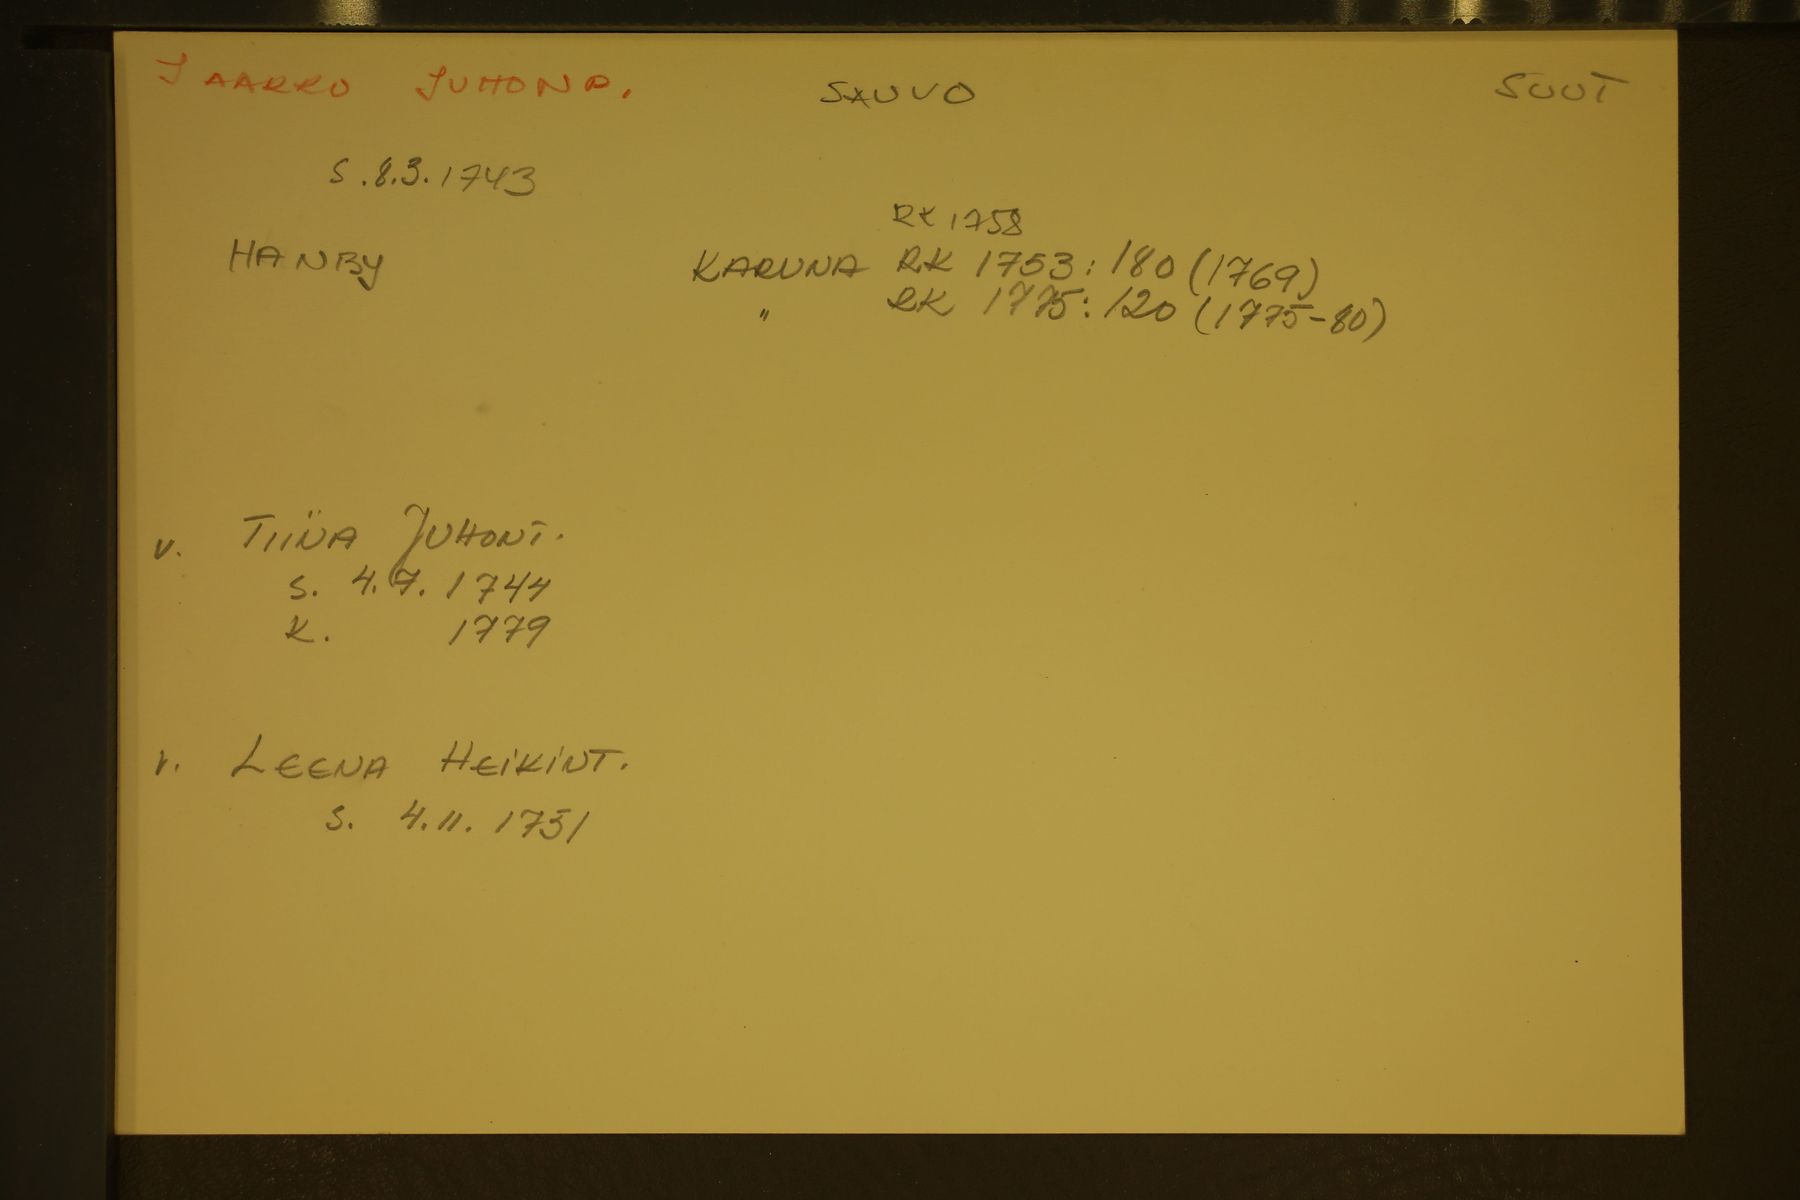 JAAKKO JUHONP. SAUVO SUUT
S. 8.3. 1743
RK 1758
HANBY KARUNA RK 1753: 180 (1769)
" RK 1775: 120 (1775-80)
v. TIINA JUHONT.
S. 4.7. 1744
K. 1779
v. LEENA HEIKINT.
S. 4.11. 1751